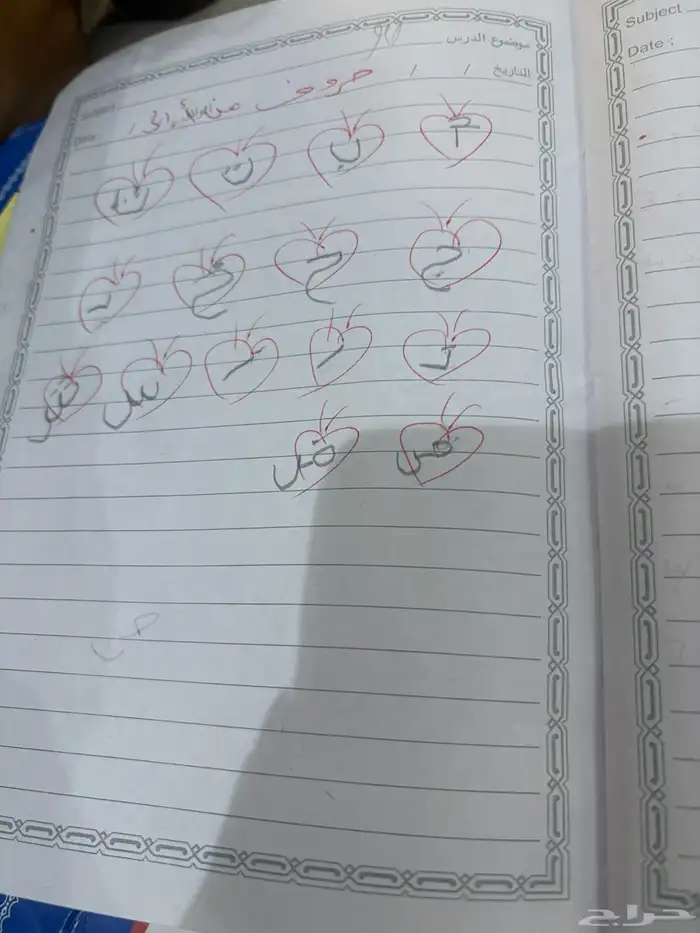 Subject
موضوع الدرس
Date :
التاريخ / /
حروف من أ إلى
أ ب ت ث
ج ح خ د
ذ ر ز س ش
ص ض
ص
Subject
Date :
حراج